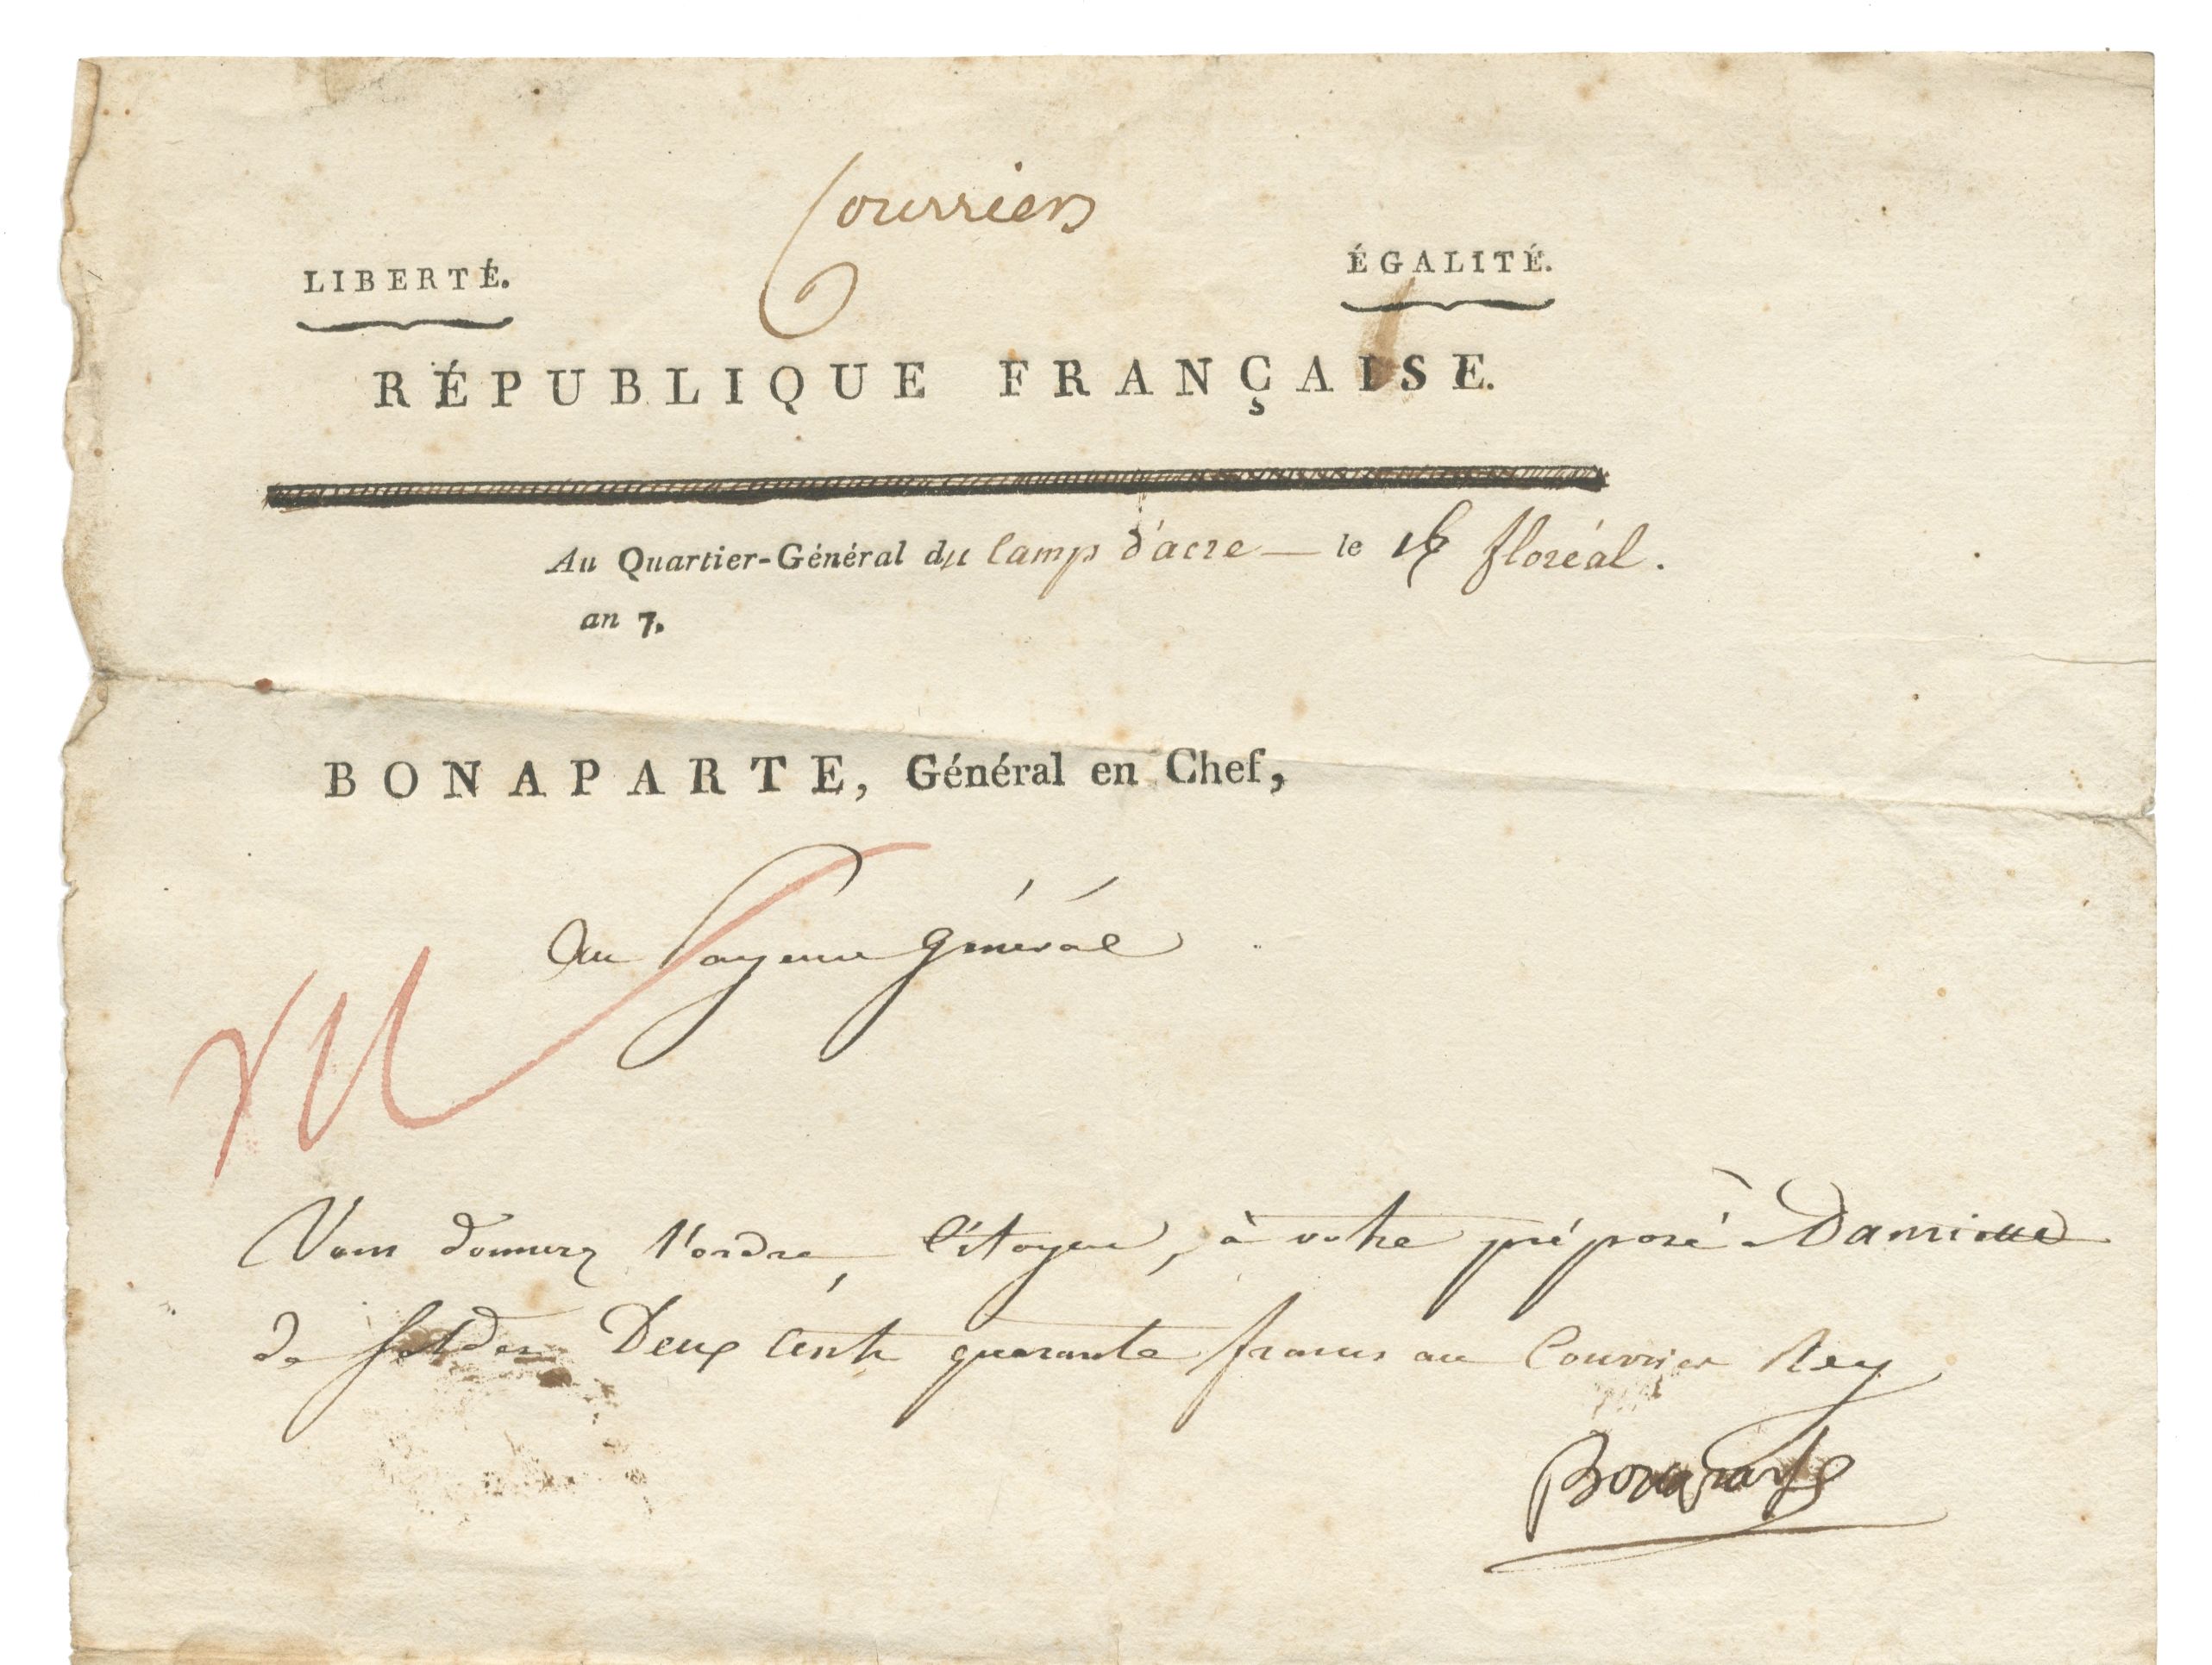 Courriers
LIBERTÉ. ÉGALITÉ.
RÉPUBLIQUE FRANÇAISE.
Au Quartier-Général du Camp d'acre — le floréal.
an 7.
BONAPARTE, Général en Chef,
Au Payeur Général
Vous donnerez l'ordre, Citoyen, à votre préposé à Damiette
de solder Deux Cents quarante francs au Courrier Rey
Bonaparte